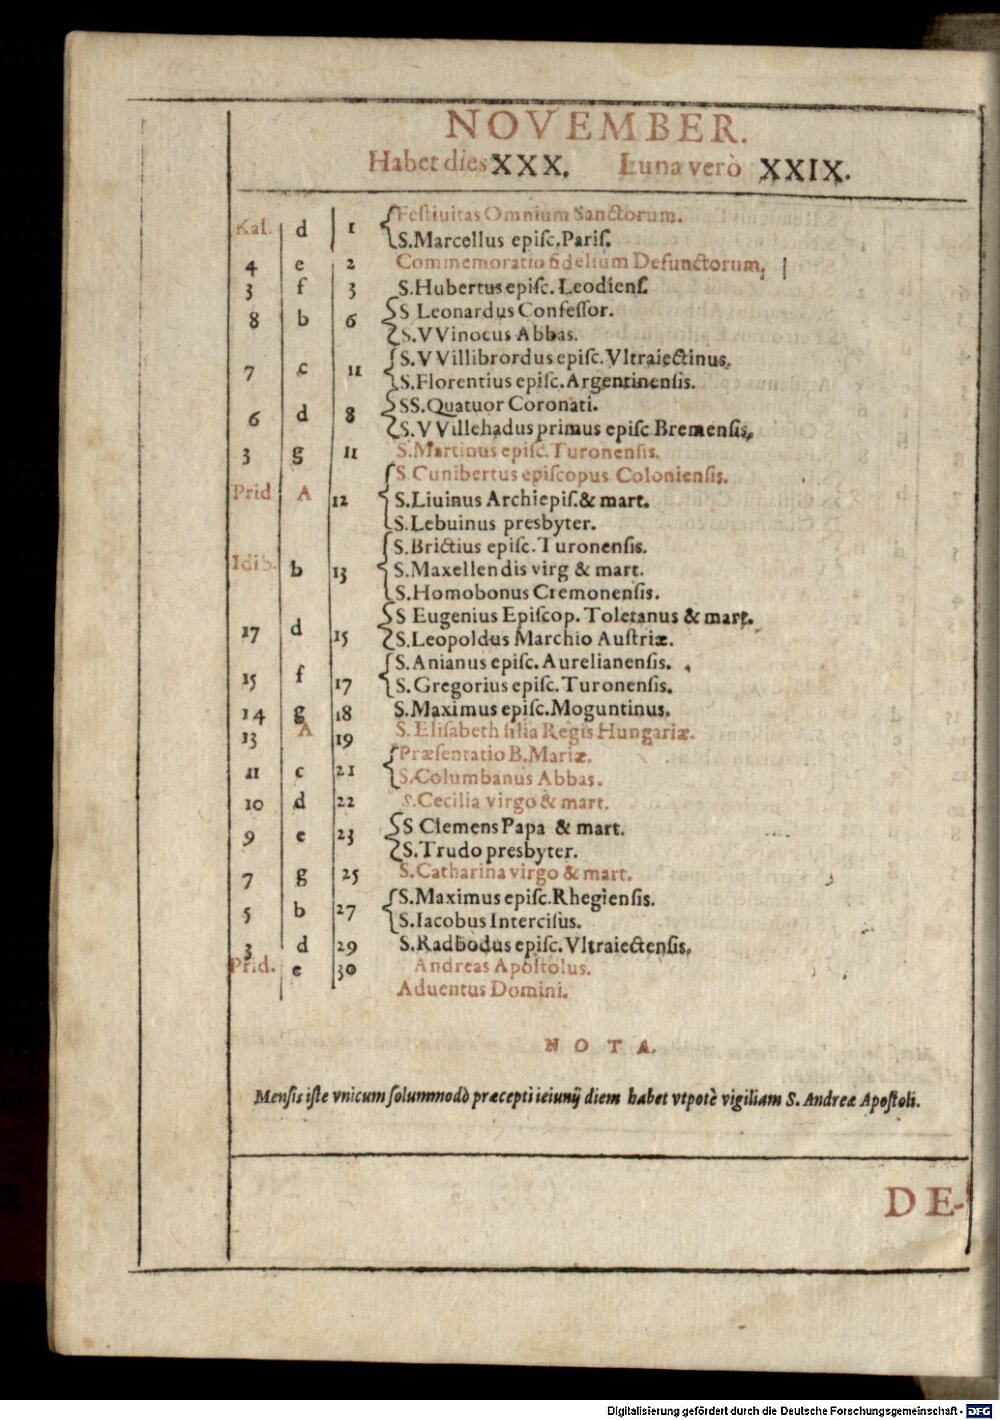 NOVEMBER.
Habet dies XXX. Luna verò XXIX.
Kal. d 1 Festiuitas Omnium Sanctorum.
S.Marcellus episc.Paris.
4 e 2 Commemoratio fidelium Defunctorum.
3 f 3 S.Hubertus episc. Leodiens.
8 b 6 S Leonardus Confessor.
S.VVinocus Abbas.
7 c 11 S.VVillibrordus episc. Vltraiectinus.
S.Florentius episc.Argentinensis.
6 d 8 SS.Quatuor Coronati.
S.VVillehadus primus episc Bremensis.
3 g 11 S.Martinus episc. Turonensis.
Prid A 12 S.Cunibertus episcopus Coloniensis.
S.Liuinus Archiepis.& mart.
S.Lebuinus presbyter.
Idib. b 13 S.Brictius episc.Turonensis.
S.Maxellendis virg & mart.
S.Homobonus Cremonensis.
17 d 15 S Eugenius Episcop. Toletanus & mart.
S.Leopoldus Marchio Austriæ.
15 f 17 S.Anianus episc.Aurelianensis.
S.Gregorius episc.Turonensis.
14 g 18 S.Maximus episc.Moguntinus.
13 A 19 S.Elisabeth filia Regis Hungariæ.
11 c 21 Præsentatio B.Mariæ.
S.Columbanus Abbas.
10 d 22 S.Cecilia virgo & mart.
9 e 23 S Clemens Papa & mart.
S.Trudo presbyter.
7 g 25 S.Catharina virgo & mart.
5 b 27 S.Maximus episc.Rhegiensis.
S.Iacobus Intercisus.
3 d 29 S.Radbodus episc.Vltraiectensis.
Prid. e 30 Andreas Apostolus.
Aduentus Domini.
NOTA.
Mensis iste vnicum solummodò præcepti ieiunij diem habet vtpotè vigiliam S. Andreæ Apostoli.
DE-
Digitalisierung gefördert durch die Deutsche Forschungsgemeinschaft - DFG